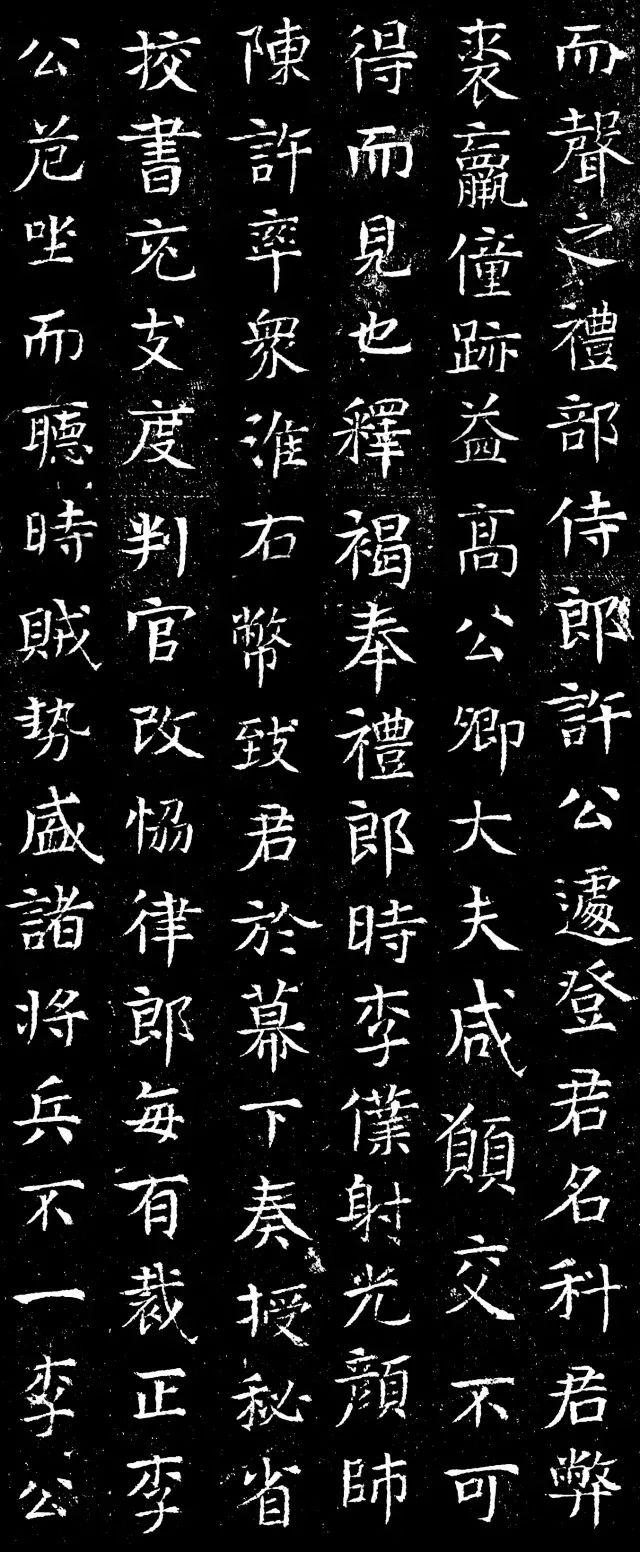 而聲之禮部侍郎許公遽登君名科君弊
裘羸僮跡益高公卿大夫咸願交不可
得而見也釋褐奉禮郎時李僕射光顔師
陳許率衆淮右幣致君於幕下奏授秘省
挍書充支度判官改恊律郎每有裁正李
公危坐而聽時賊勢盛諸将兵不一李公